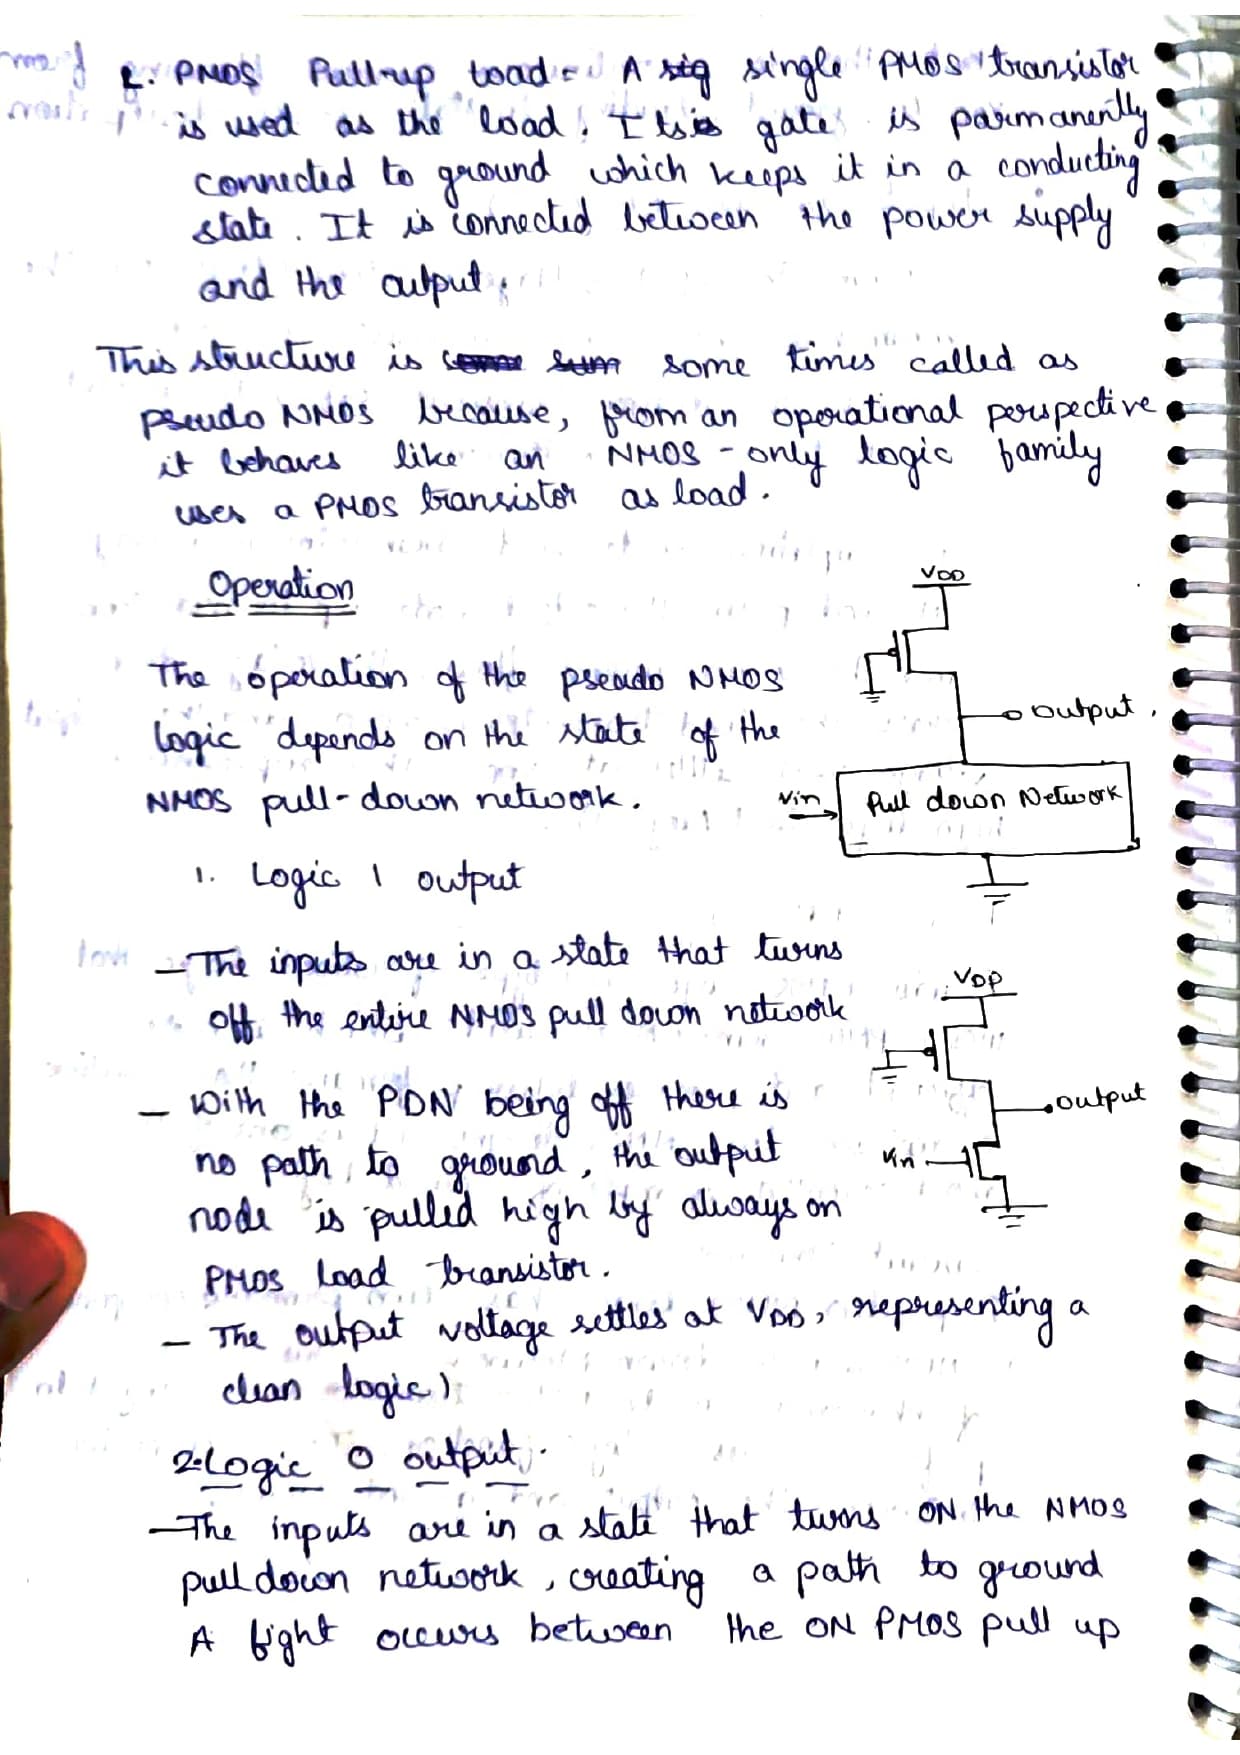 2. PMOS Pull-up load = A single PMOS transistor
is used as the load. Its gate is parmanently
connected to ground which keeps it in a conducting
state. It is connected between the power supply
and the output.
This structure is some times called as
pseudo NMOS because, from an operational perspective
it behaves like an NMOS - only logic family
uses a PMOS transistor as load.
Operation
VDD
The operation of the pseudo NMOS
logic depends on the state of the
output.
NMOS pull-down network.
Vin
Pull down Network
1. Logic 1 output
- The inputs are in a state that turns
off the entire NMOS pull down network
VDD
- With the PDN being off there is
no path to ground, the output
output
Vin
node is pulled high by always on
PMOS load transistor.
- The output voltage settles at VDD, representing a
clean logic 1
2. Logic 0 output.
- The inputs are in a state that turns ON the NMOS
pull down network, creating a path to ground
A fight occurs between the ON PMOS pull up